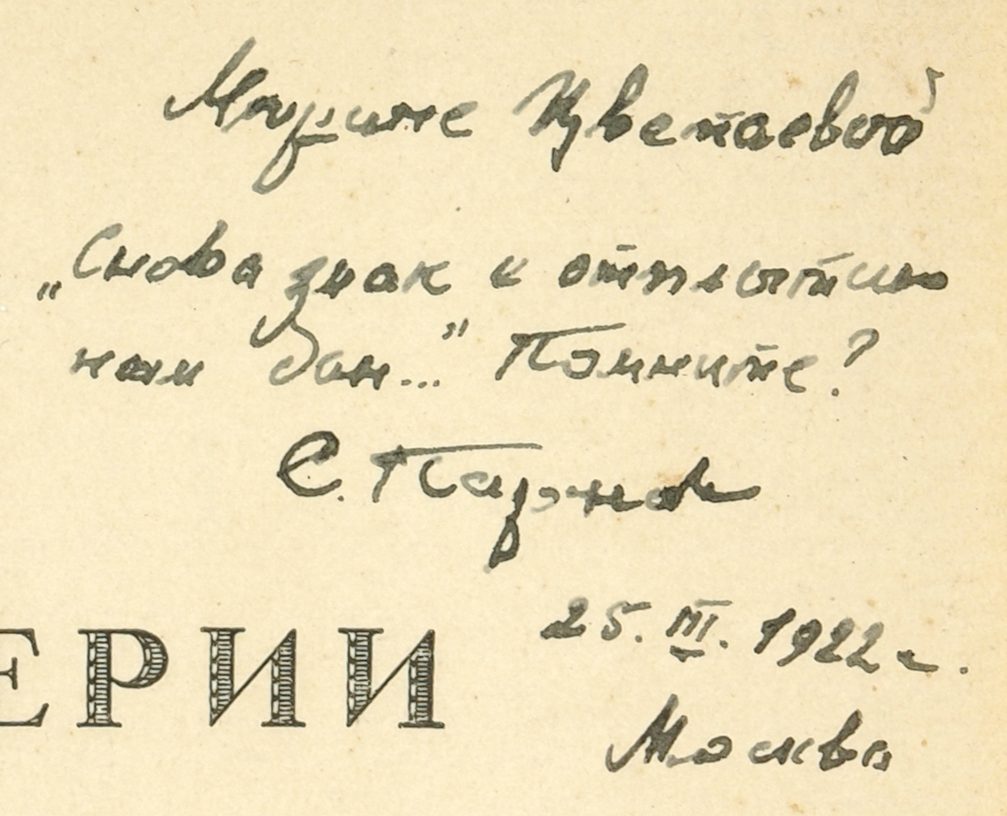 Марине Цветаевой
„Снова знак к отплытию
нам дан...” Помните?
С. Парнок
25. III. 1922 г.
ЕРИИ
Москва